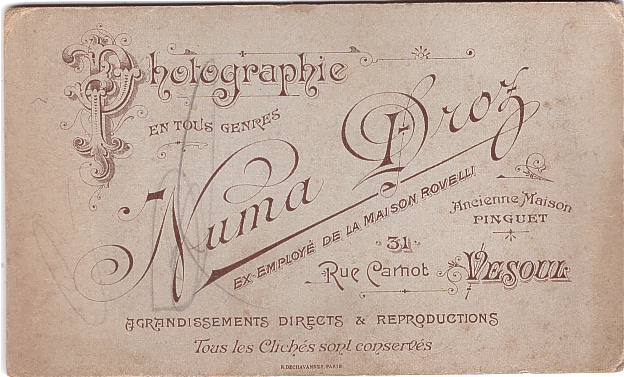 Photographie
EN TOUS GENRES
Numa Droz
EX-EMPLOYÉ DE LA MAISON ROVELLI
Ancienne Maison
PINGUET
31
Rue Carnot
VESOUL
AGRANDISSEMENTS DIRECTS & REPRODUCTIONS
Tous les Clichés sont conservés
R. DECHAVANNES, PARIS